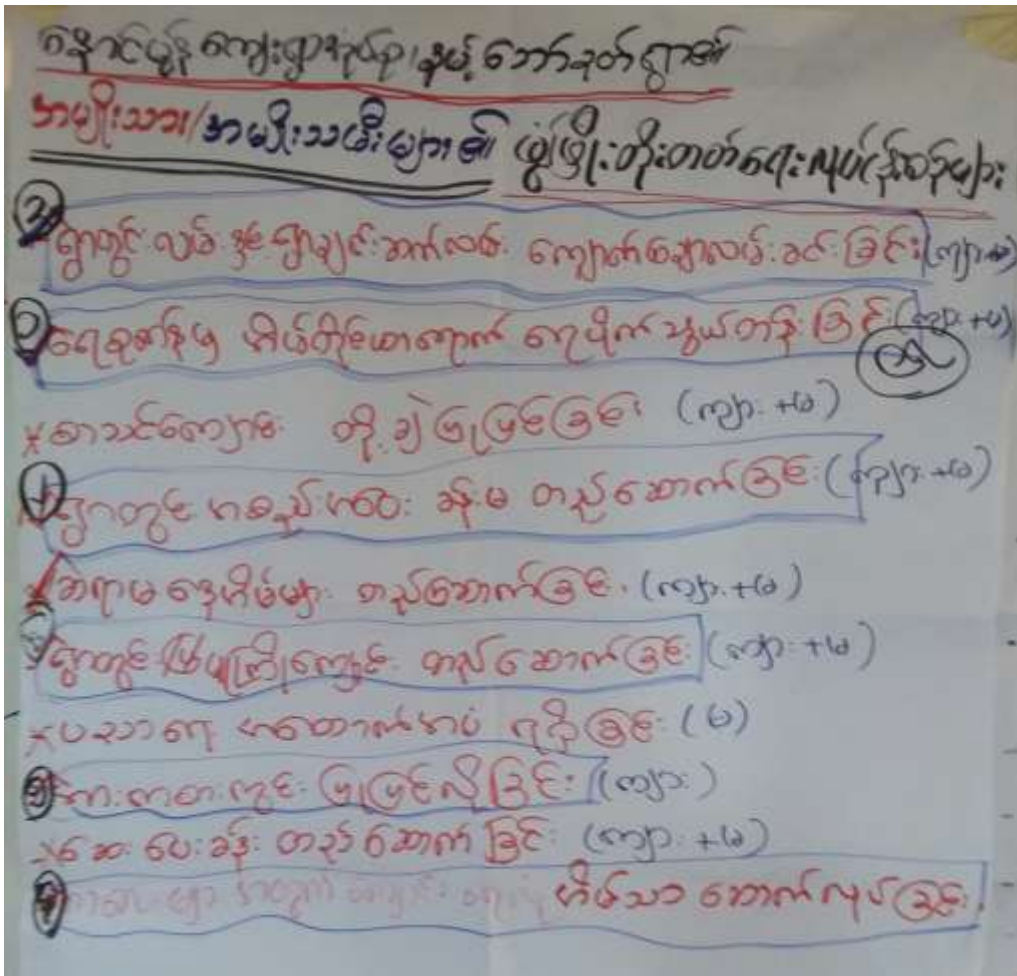 နောင်မွန် ကျေးရွာအုပ်စု၊ နမ့် ဘော်ခုတ် ရွာ၏
အမျိုးသား/အမျိုးသမီးများ၏ ဖွံ့ဖြိုးတိုးတတ်ရေး လုပ်ငန်းစဉ်များ
၃ ရွာတွင်း လမ်း နှင့် ရွာချင်းဆက်လမ်း ကျောက်ချောလမ်း ခင်း ခြင်း (ကျား+မ)
၁ ရေ မှ အိမ်တိုင်ယာရောက် ရေပိုက် သွယ်တန်း ခြင်း (ကျား+မ)
x စာသင်ကျောင်း တိုးချဲ့ ပြုပြင်ခြင်း (ကျား+မ)
ရွာတွင် အစည်းအဝေး ခန်းမ တည်ဆောက်ခြင်း (ကျား+မ)
x ဆရာမ နေအိမ်များ တည်ဆောက်ခြင်း (ကျား+မ)
ရွာတွင် မူကြိုကျောင်း တည်ဆောက်ခြင်း (ကျား+မ)
x ပညာရေး အထောက်အပံ့ ရလိုခြင်း (မ)
အားကစားကွင်း ပြုပြင်လိုခြင်း (ကျား)
x ဆေးပေးခန်း တည်ဆောက်ခြင်း (ကျား+မ)
အိမ်သာ ဆောက်လုပ်ခြင်း